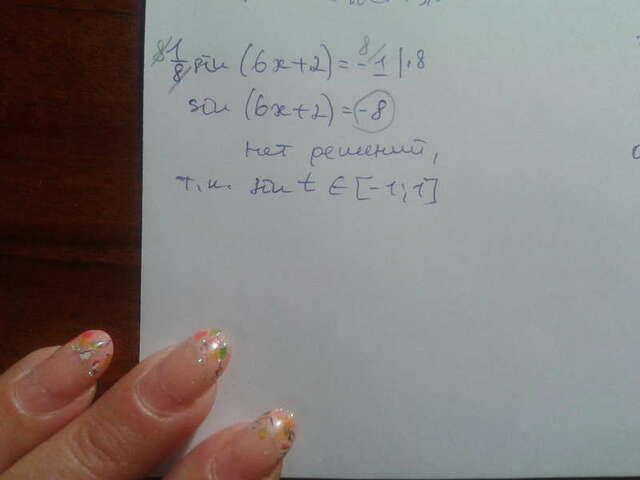 8/ 1/8 sin (6x+2) = -1 8/ |·8
sin (6x+2) = -8
нет решений,
т.к. sin t ∈ [-1; 1]